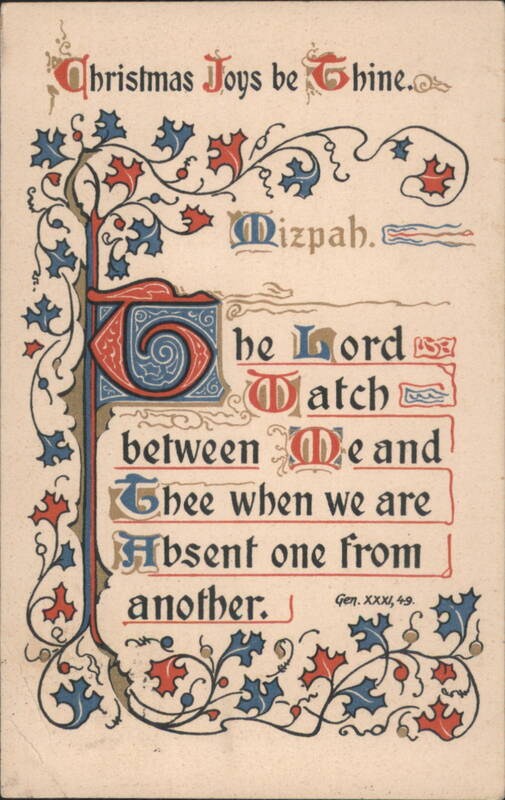 Christmas Joys be Thine.
Mizpah.
The Lord
Watch
between Me and
Thee when we are
Absent one from
another.
Gen. XXXI, 49.